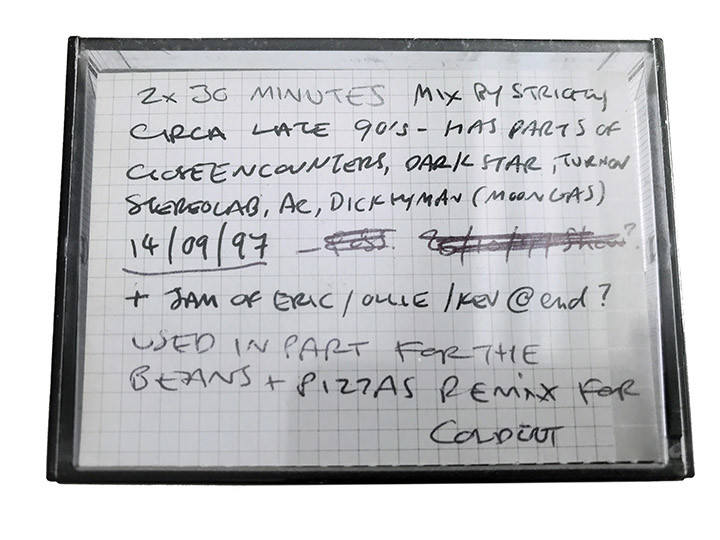 2x 30 MINUTES MIX BY STRICTLY
CIRCA LATE 90'S - HAS PARTS OF
CLOSE ENCOUNTERS, DARK STAR, TURNON
STEREOLAB, AR, DICK HYMAN (MOON GAS)
14/09/97 - ?
+ JAM OF ERIC / OLLIE / KEV @ end?
USED IN PART FOR THE
BEANS + PIZZAS REMIX FOR
COLDCUT